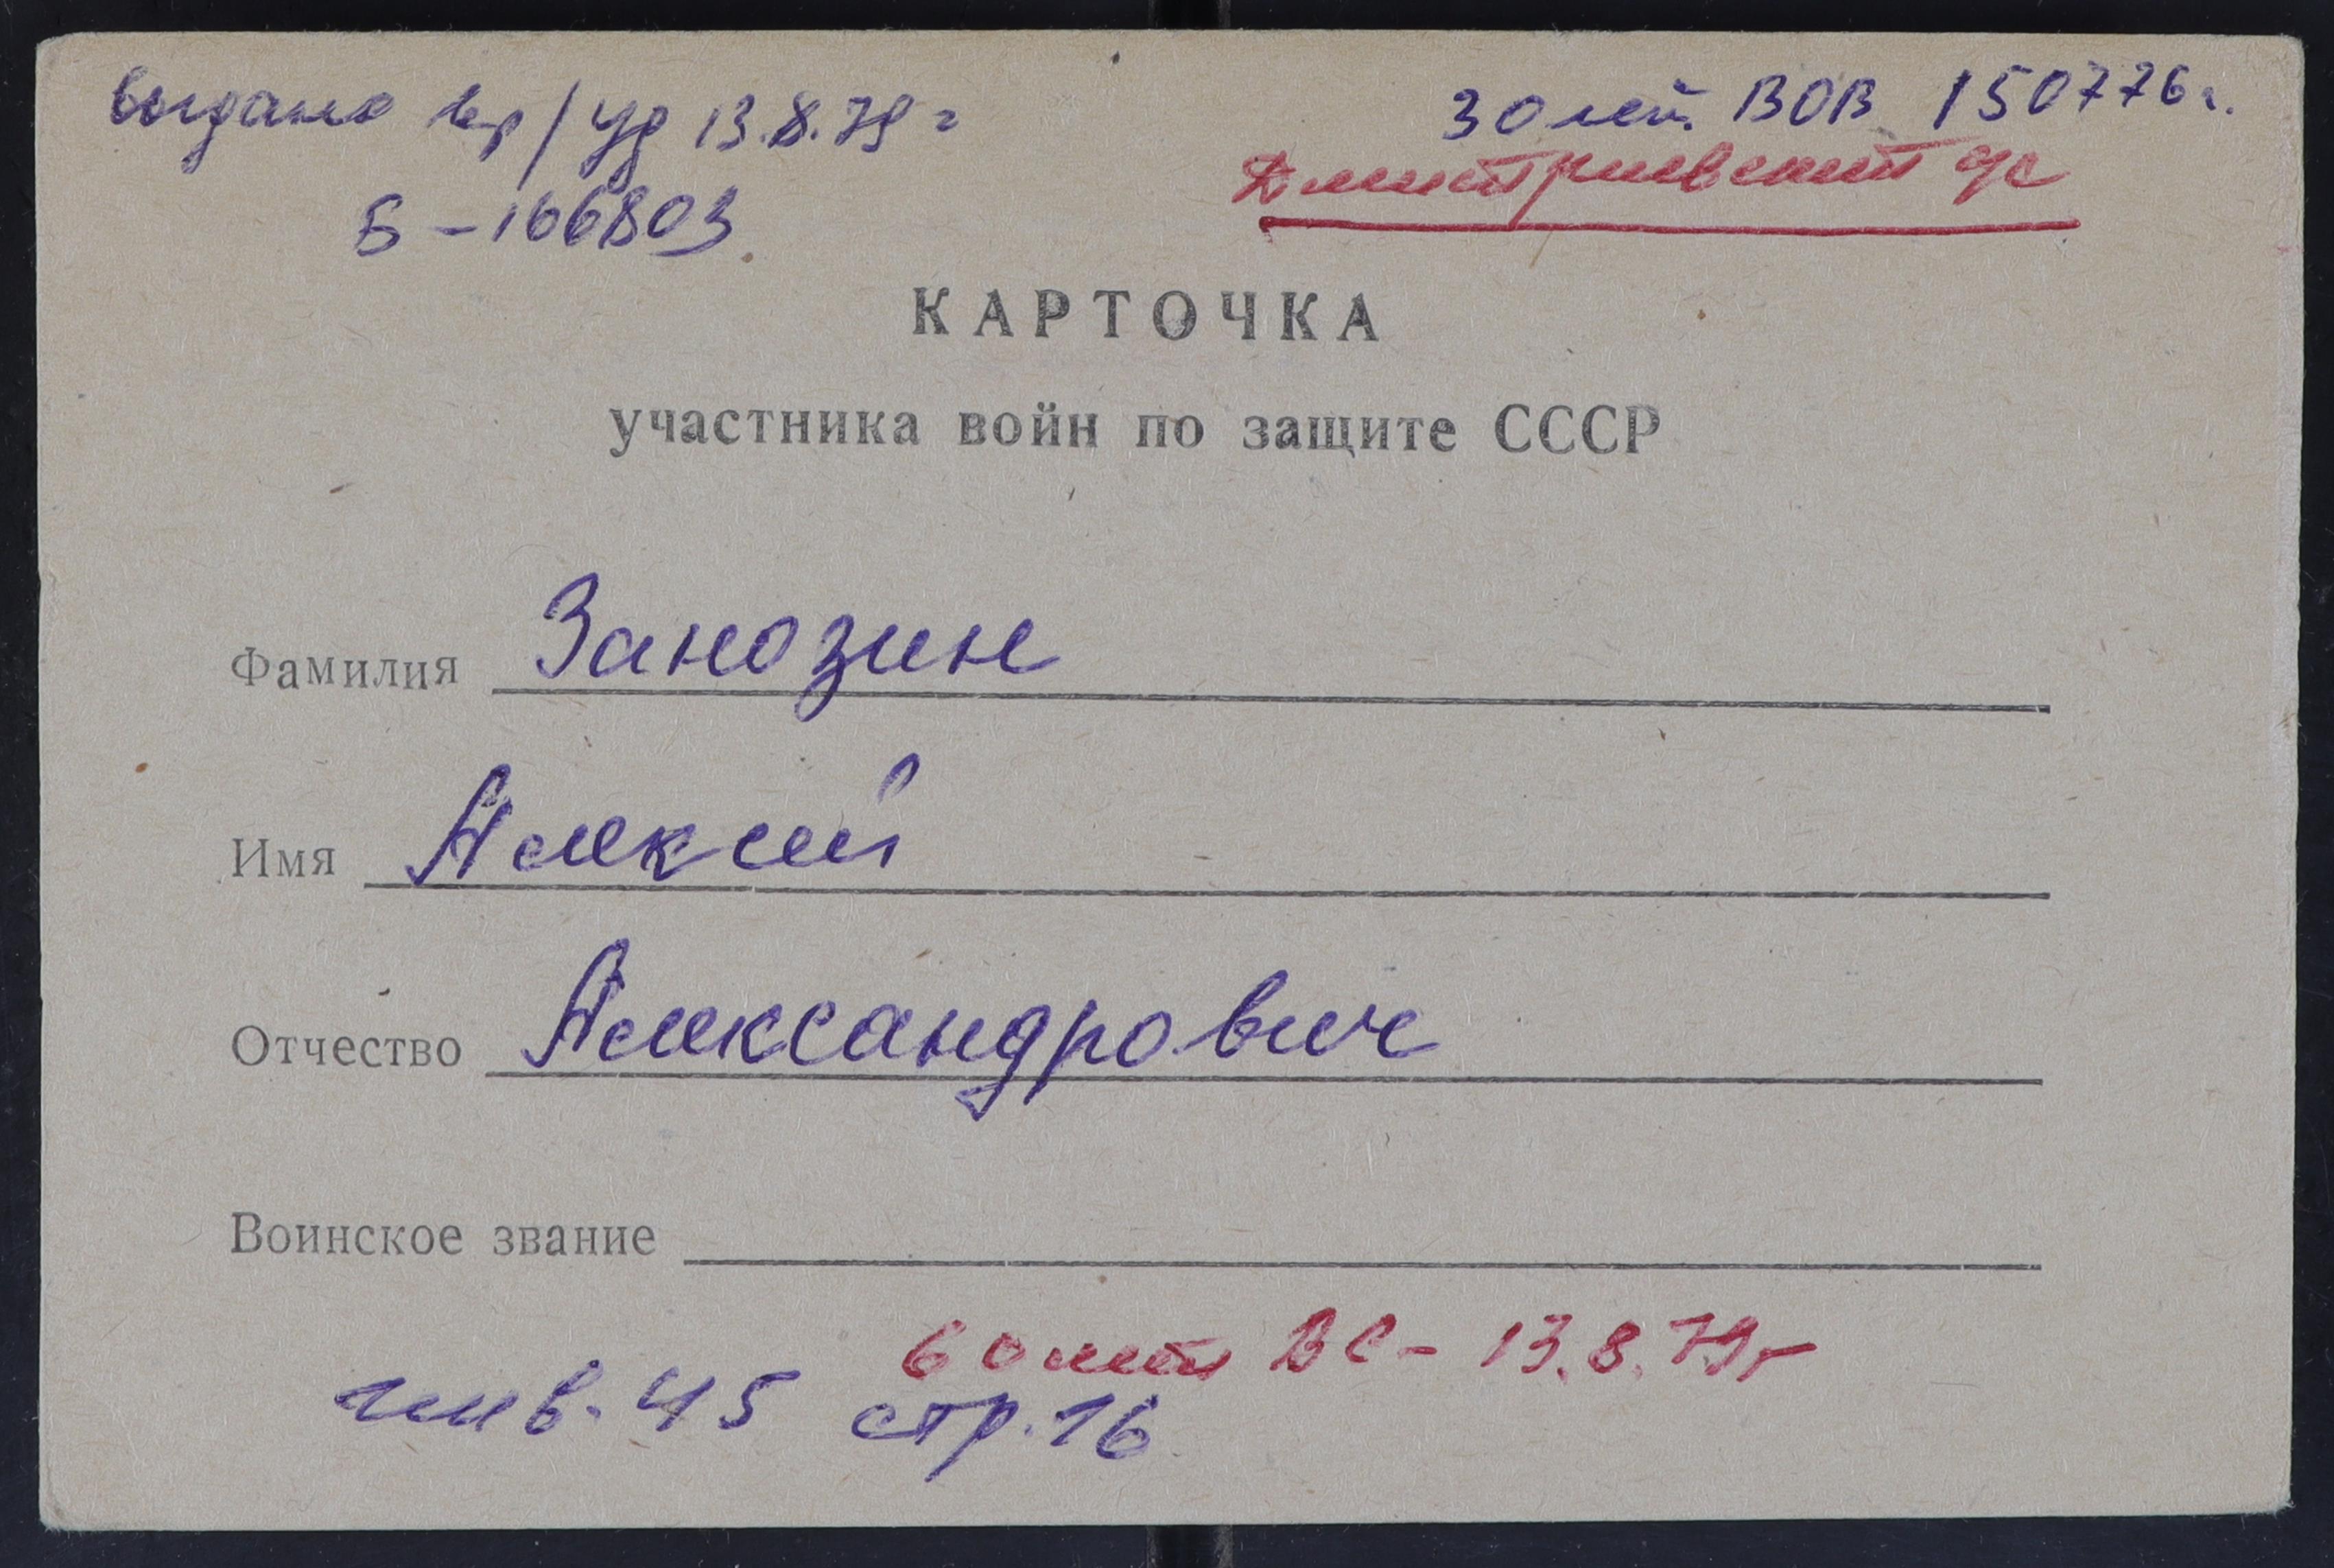 выдано
уд 13.8.79 г
30 лет ВОВ 150776 г.
Б-166803
Дмитриевский
КАРТОЧКА
участника войн по защите СССР
Фамилия Занозин
Имя Алексей
Отчество Александрович
Воинское звание
60 лет ВС - 13.8.79г
инв. 45 стр. 16